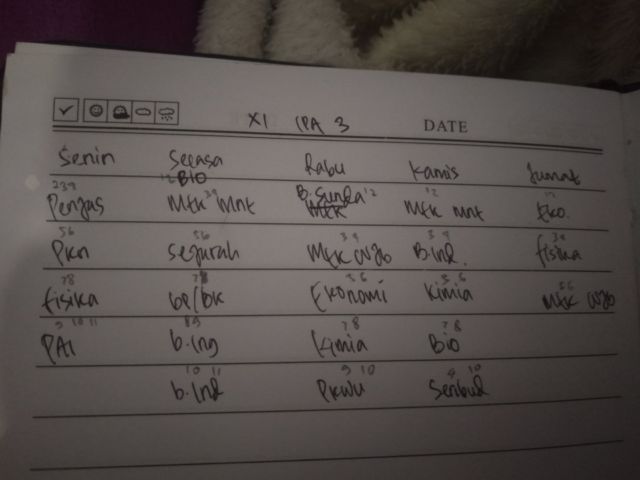 XI IPA 3 DATE
Senin Selasa Rabu Kamis Jumat
12 BIO B. Sunda 12
234 34 12 12
Penjas Mtk Mnt Mtk Mtk mnt Eko.
56 56 34 34 34
Pkn Sejarah Mtk wjb B.Ind. fisika
78 78 56 56 56
fisika bp/bk Ekonomi Kimia Mtk wjb
9 10 11 89 78 78
PAI b.ing Kimia Bio
10 11 9 10 9 10
b.Ind Pkwu Senbud